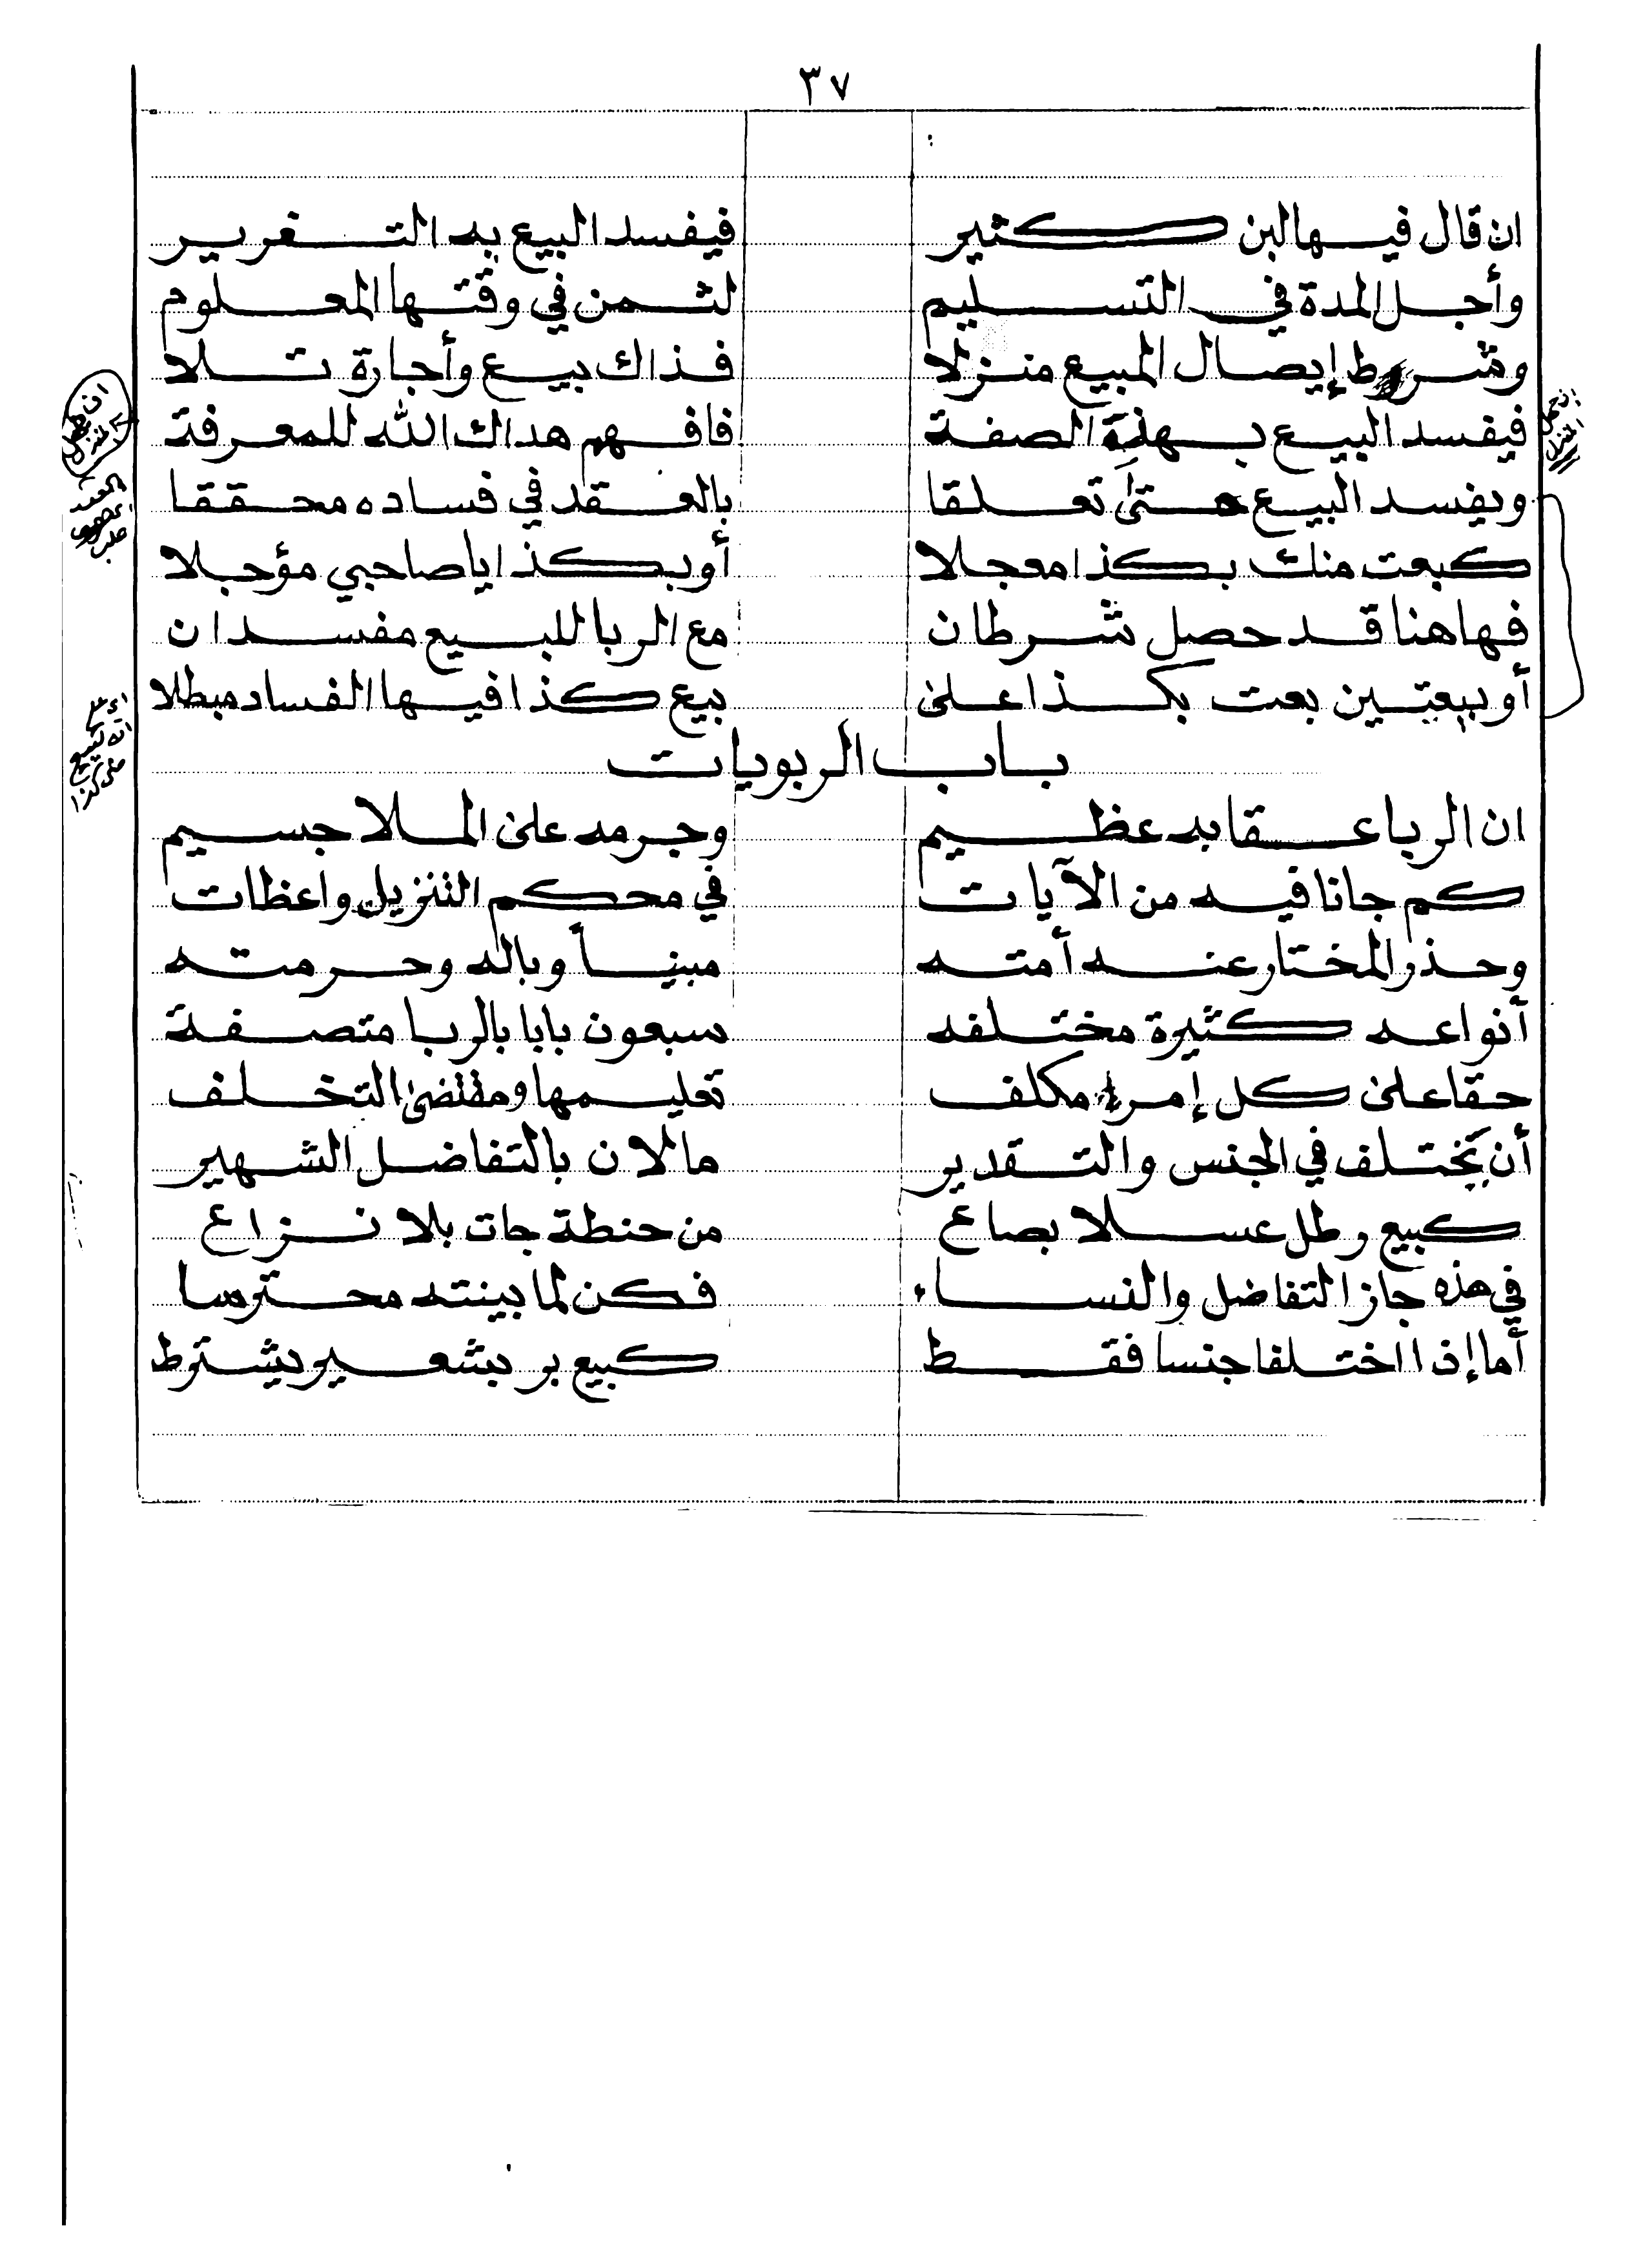 ٣٧
ان قال فيها لبن كثير فيفسد البيع به التغرير
وأجل المدة في التسليم لثمن في وقتها المعلوم
وشرط إيصال المبيع منزلا فذاك بيع وأجارة تلا
فيفسد البيع بهذه الصفة فافهم هداك الله للمعرفة
ويفسد البيع متى تعلقا بالعقد في فساده محققا
كبعت منك بكذا معجلا أو بكذا يا صاحبي مؤجلا
فهاهنا قد حصل شرطان مع الربا للبيع مفسدان
أو بيعتين بعت بكذا على بيع كذا فيها الفساد مبطلا
باب الربويات
ان الربا عقابه عظيم وجرمه على الملا جسيم
كم جانا فيه من الآيات في محكم التنزيل واعظات
وحذر المختار عنه أمته مبيناً وباله وحرمته
أنواعه كثيرة مختلفه سبعون بابا بالربا متصفة
حقا على كل إمرء مكلف تعليمها ومقتضى التخلف
أن يختلف في الجنس والتقدير مالان بالتفاضل الشهير
كبيع رطل عسلا بصاع من حنطة جات بلا نزاع
في هذه جاز التفاضل والنساء فكن لما بينته محترسا
أما إذا اختلفا جنسا فقط كبيع بر بشعير يشترط